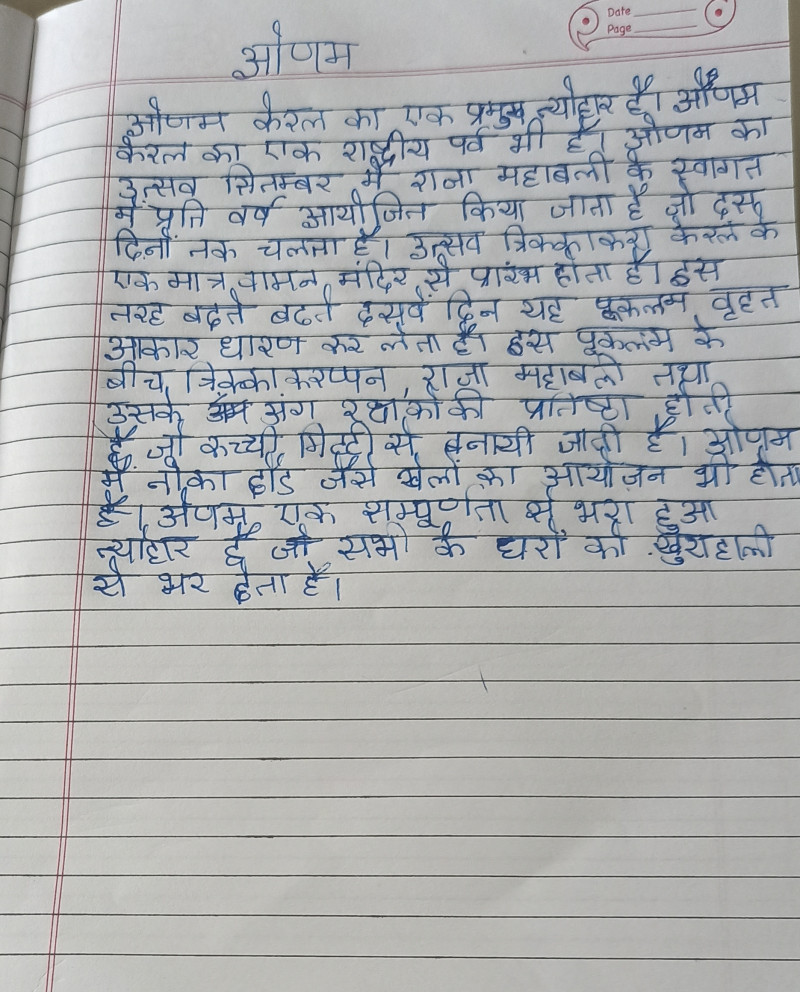 Date
Page
ओणम
ओणम केरल का एक प्रमुख त्योहार है। ओणम
केरल का एक राष्ट्रीय पर्व भी है। ओणम का
उत्सव सितम्बर में राजा महाबली के स्वागत
में प्रति वर्ष आयोजित किया जाता है जो दस
दिनों तक चलता है। उत्सव त्रिक्काकरा केरल के
एक मात्र वामन मंदिर से प्रारंभ होता है। इस
तरह बढ़ते बढते दसवें दिन यह पूकलम वृहत
आकार धारण कर लेता है। इस पूकलम के
बीच त्रिक्काकरप्पन, राजा महाबली तथा
उसके अंग रक्षकों की प्रतिष्ठा होती
है जो कच्ची मिट्टी से बनायी जाती है। ओणम
में नौका दौड जैसे खेलों का आयोजन भी होता
है। ओणम एक सम्पूर्णता से भरा हुआ
त्योहार है जो सभी के घरों को खुशहाली
से भर देता है।